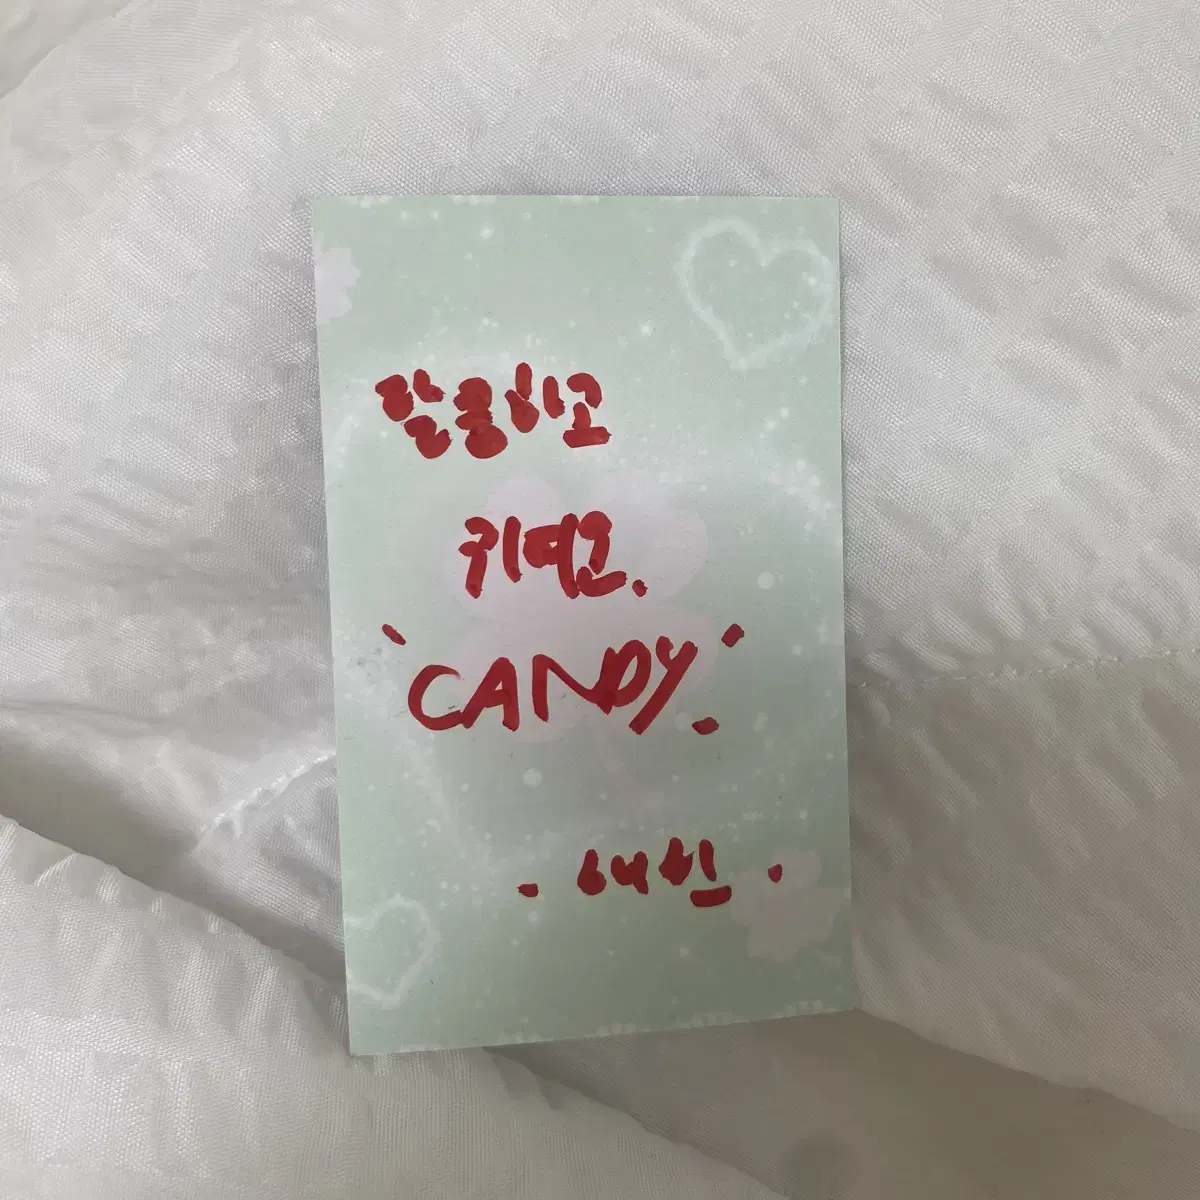 달콤하고
귀여운.
'CANDY'.
- 해찬 -